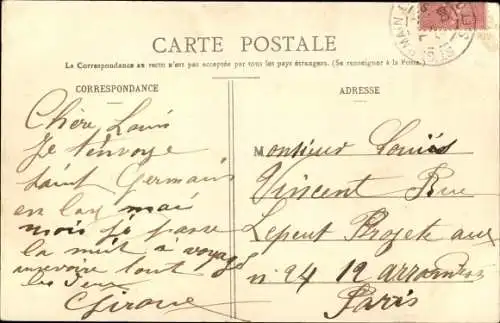 CARTE POSTALE
La Correspondance au recto n'est pas acceptée par tous les pays étrangers. (Se renseigner à la Poste.)
CORRESPONDANCE
Chère Louis
Je t'envoye
saint Germain
en lay mai
mois je passe
la nuit à voyagé
aurevoire tout
les deux
ADRESSE
Monsieur Louis
Vincent Rue
Lepeut Projete aux
n. 24 12 arron
Parris